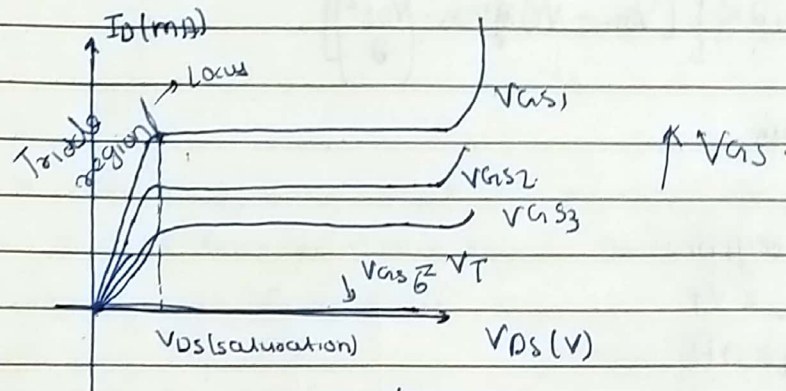 ID(mA)
Locus
Triode
region
VGS1
VGS
VGS2
VGS3
VGS ≤ VT
VDS(saturation)
VDS(V)